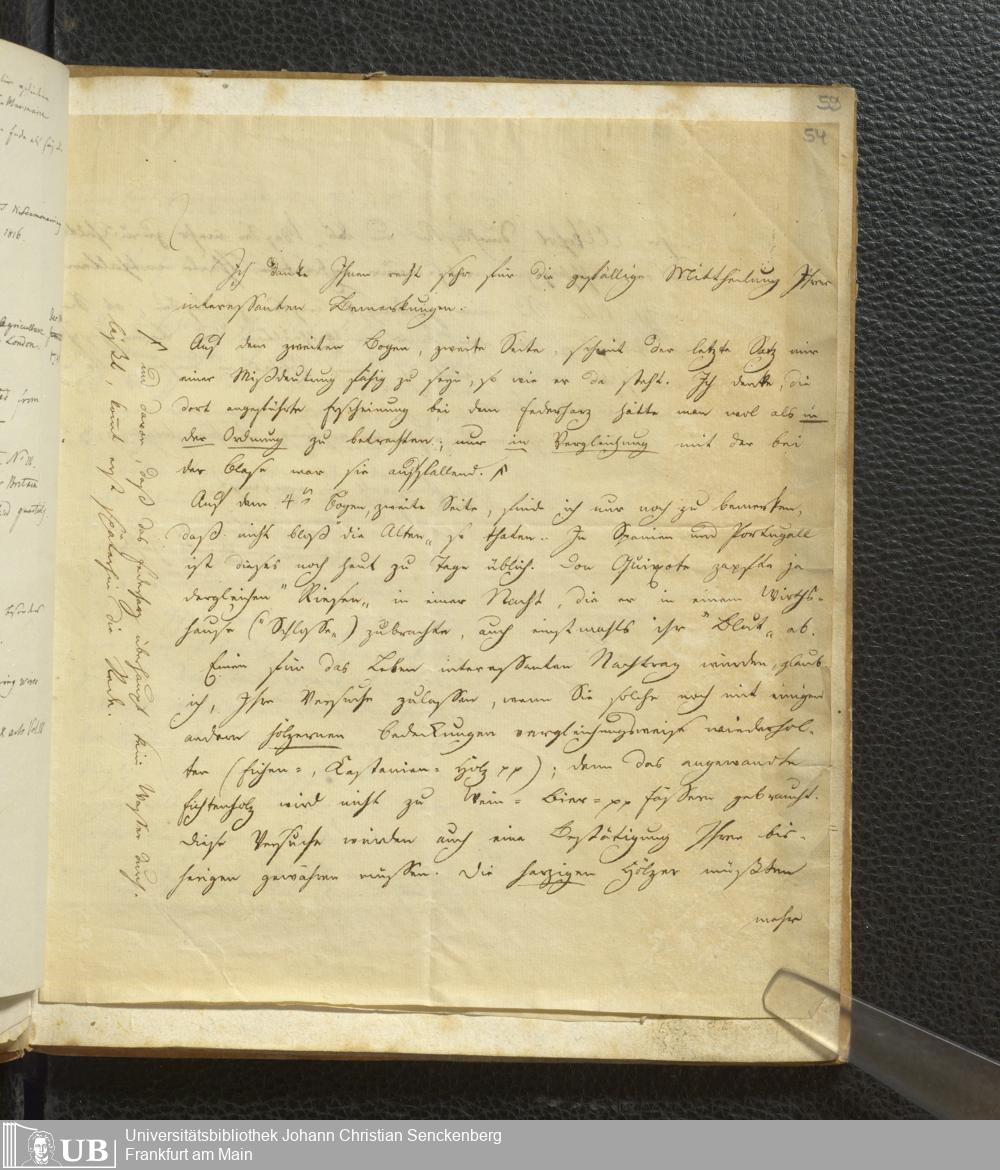 53
54
Ich danke Ihnen recht sehr für die gefällige Mittheilung Ihrer
interessanten Bemerkungen.
Auf dem zweiten Bogen, zweite Seite, scheint der letzte Satz mir
einer Mißdeutung fähig zu seyn, so wie er da steht. Ich denke, die
dort angeführte Erscheinung bei dem Federharz hätte man wol als in
der Ordnung zu betrachten; nur in Vergleichung mit der bei
der Blase war sie auffallend.
Auf dem 4ten Bogen, zweite Seite, finde ich nur noch zu bemerken,
daß nicht bloß "die Alten" so thaten. In Spanien und Portugall
ist dieses noch heut zu Tage üblich. Don Quixote zapfte ja
dergleichen "Riesen" in einer Nacht, die er in einem Wirths-
hause ("Schlosse") zubrachte, auch einstmahls ihr "Blut" ab.
Einen für das Leben interessanten Nachtrag würden, glaub
ich, Ihre Versuche zulassen, wenn Sie solche noch mit einigen
andern hölzernen Bedeckungen vergleichungsweise wiederhol-
ten (Eichen-, Kastanien- Holz pp); denn das angewandte
Fichtenholz wird nicht zu Wein- Bier- pp Fässern gebraucht.
Diese Versuche würden auch eine Bestätigung Ihrer bis-
herigen gewähren müssen. Die harzigen Hölzer müßten
mehr
und davon, daß das Federharz überhaupt kein Wasser durch-
läßt, kommt erst die Rede.
UB
Universitätsbibliothek Johann Christian Senckenberg
Frankfurt am Main